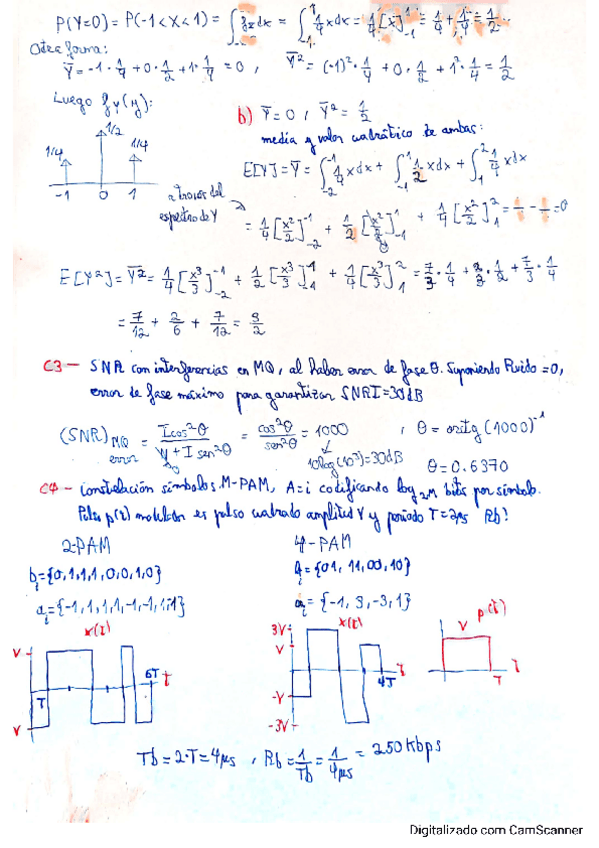 P(Y=0) = P(-1<X<1) = ∫ fx dx = ∫₋₁¹ 1/4 x dx = 1/4 [x]₋₁¹ = 1/4 + 1/4 = 1/2
Otra forma:
Y̅ = -1·1/4 + 0·1/2 + 1·1/4 = 0, Y̅² = (-1)²·1/4 + 0·1/2 + 1²·1/4 = 1/2
Luego fy(y):
1/4 1/2 1/4
-1 0 1
b) Y̅ = 0, Y̅² = 1/2
media y valor cuadrático de ambas:
E[Y] = Y̅ = ∫₋₂⁻¹ 1/4 x dx + ∫₋₁¹ 1/2 x dx + ∫₁² 1/4 x dx
a través del
espectro de Y
= 1/4 [x²/2]₋₂⁻¹ + 1/2 [x²/2]₋₁¹ + 1/4 [x²/2]₁² = 0
E[Y²] = Y̅² = 1/4 [x³/3]₋₂⁻¹ + 1/2 [x³/3]₋₁¹ + 1/4 [x³/3]₁² = 7/3·1/4 + 2/3·1/2 + 7/3·1/4
= 7/12 + 2/6 + 7/12 = 3/2
C3- SNR con interferencias en MQ, al haber error de fase θ. Suponiendo Ruido = 0,
error de fase máximo para garantizar SNRI = 30dB
(SNR)MQ error = I cos²θ / + I sen²θ = cos²θ / sen²θ = 1000, θ = (1000)⁻¹
10log(10³) = 30dB
θ = 0.6370
C4- Constelación símbolos M-PAM, A=i codificando log₂M bits por símbolo.
Pulso p(t) modulador es pulso cuadrado amplitud V y periodo T=2μs Rb?
2-PAM
4-PAM
bi = {0,1,1,1,0,0,1,0}
= {01, 11, 00, 10}
ai = {-1,1,1,1,-1,-1,
= {-1, 3, -3, 1}
x(t)
V
V
T
t
x(t)
3V
V
-V
-3V
4T
t
p(t)
V
T
t
Tb = 2·T = 4μs, Rb = 1/Tb = 1/4μs = 250 Kbps
Digitalizado com CamScanner